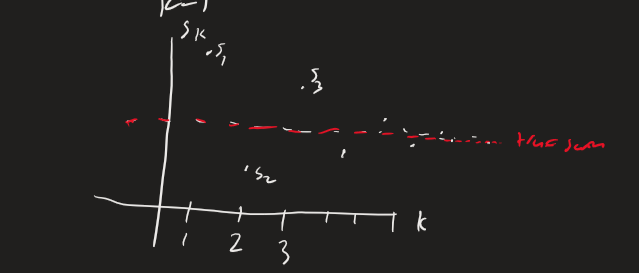 S_K
S_1
S_3
true sum
S_2
K
1 2 3